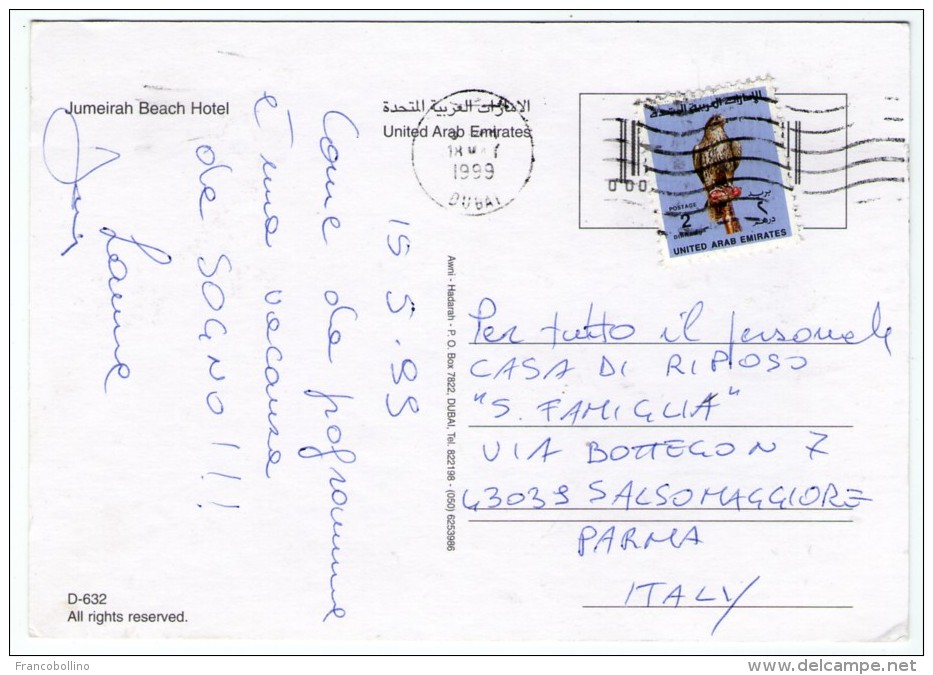 Jumeirah Beach Hotel
الإمارات العربية المتحدة
United Arab Emirates
18 1999
DUBAI
الإمارات العربية المتحدة
POSTAGE
2
بريد
٢
درهم
UNITED ARAB EMIRATES
15.5.99
Come da programme
è una vacanza
da SOGNO!!
Laura
Awni - Hadarah - P. O. Box 7822, DUBAI, Tel. 822198 - (050) 6253986
Per tutto il personale
CASA DI RIPOSO
"S. FAMIGLIA"
VIA BOTTEGON 7
43039 SALSOMAGGIORE
PARMA
ITALY
D-632
All rights reserved.
Francobollino
www.delcampe.net